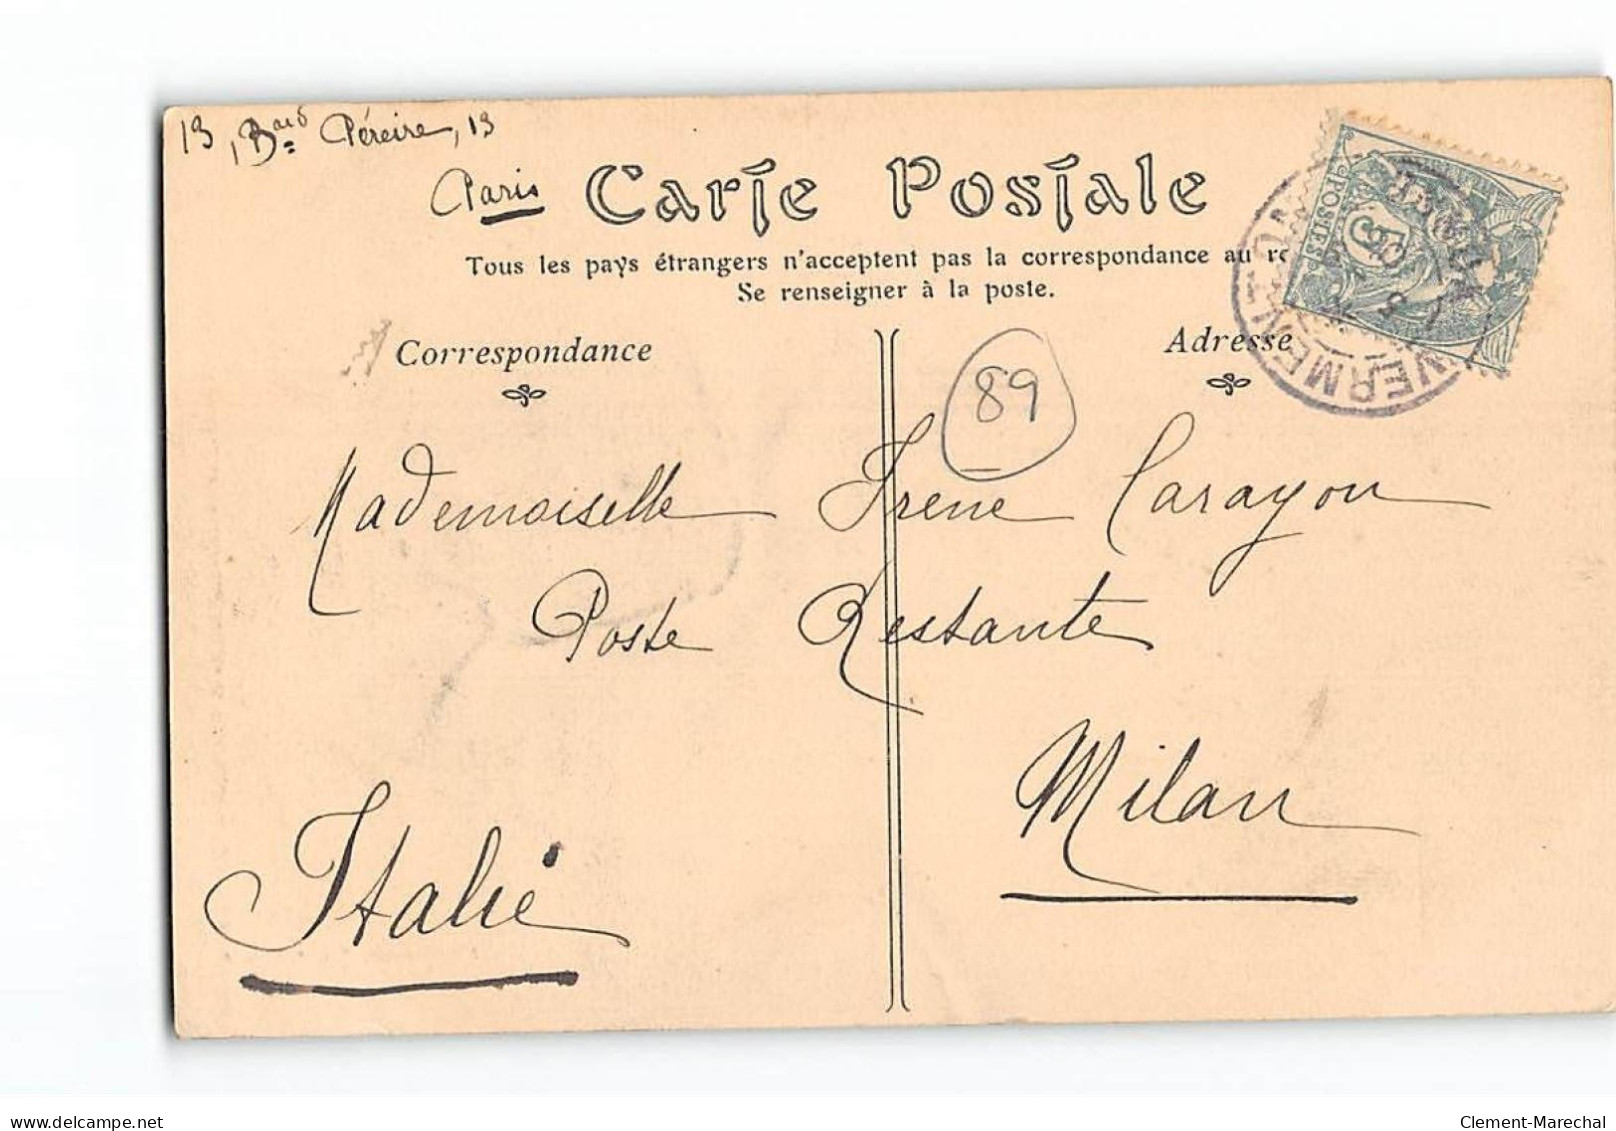 13, Bard Péreire, 13
Paris
Carte Postale
Tous les pays étrangers n'acceptent pas la correspondance au re
Se renseigner à la poste.
Correspondance
Adresse
89
POSTES
5
VERMENTON
YONNE
Mademoiselle Irene Carayon
Poste Restante
Milan
Italie
delcampe.net
Clement-Marechal